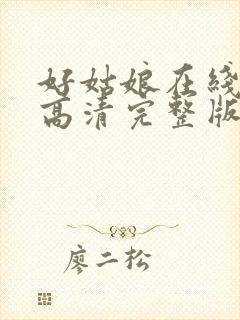 好姑娘在线
高清完整版
廖二松